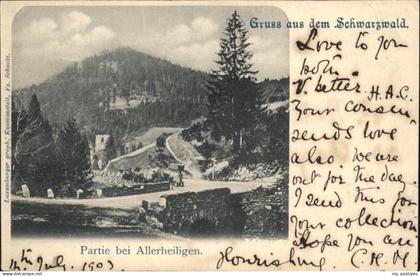 Gruss aus dem Schwarzwald.
Luxemburger graph. Kunstanstalt, Fr. Schmitt.
Love to you
both
v. better. H.A.C.
Your cousin
sends love
also. we are
out for the day.
I send this for
your collection
Hope you are
flourishing C.K.M.
Partie bei Allerheiligen.
14th July. 1903